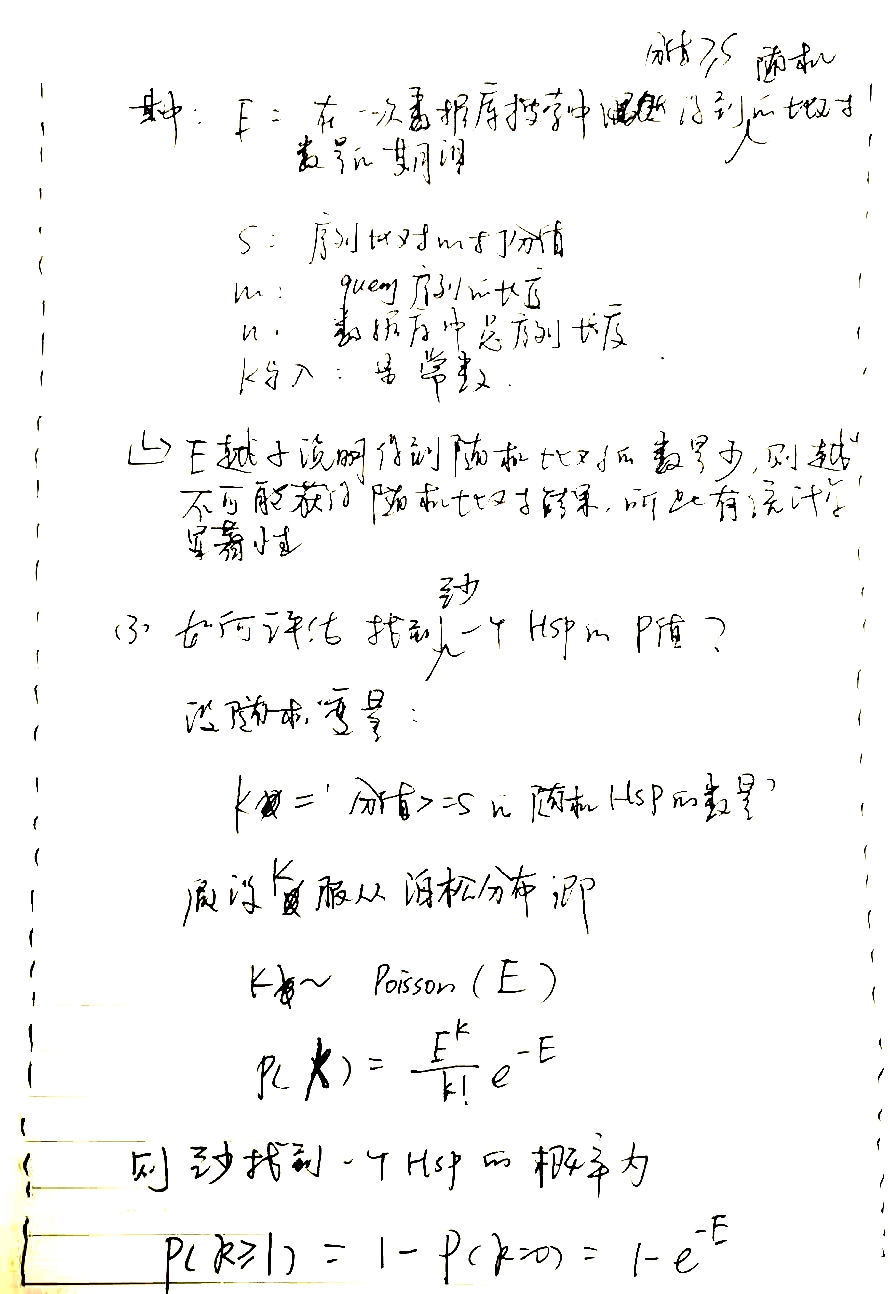 分值≥S 随机
其中: E: 在一次数据库搜索中 得到的比对
数量的期望
S: 序列比对的打分值
m: query序列的长度
n: 数据库中总序列长度
K与λ: 是常数.
↳ E越小说明得到随机比对的数量少,则越
不可能获得随机比对结果,所以有统计学
显著性
(3) 如何评估找到至少一个HSP的P值?
设随机变量:
K = '分值>=S的随机HSP的数量'
假设K服从泊松分布 即
K ~ Poisson(E)
P(k) = E^k/k! e^-E
则至少找到一个HSP的概率为
P(k≥1) = 1 - P(k=0) = 1-e^-E